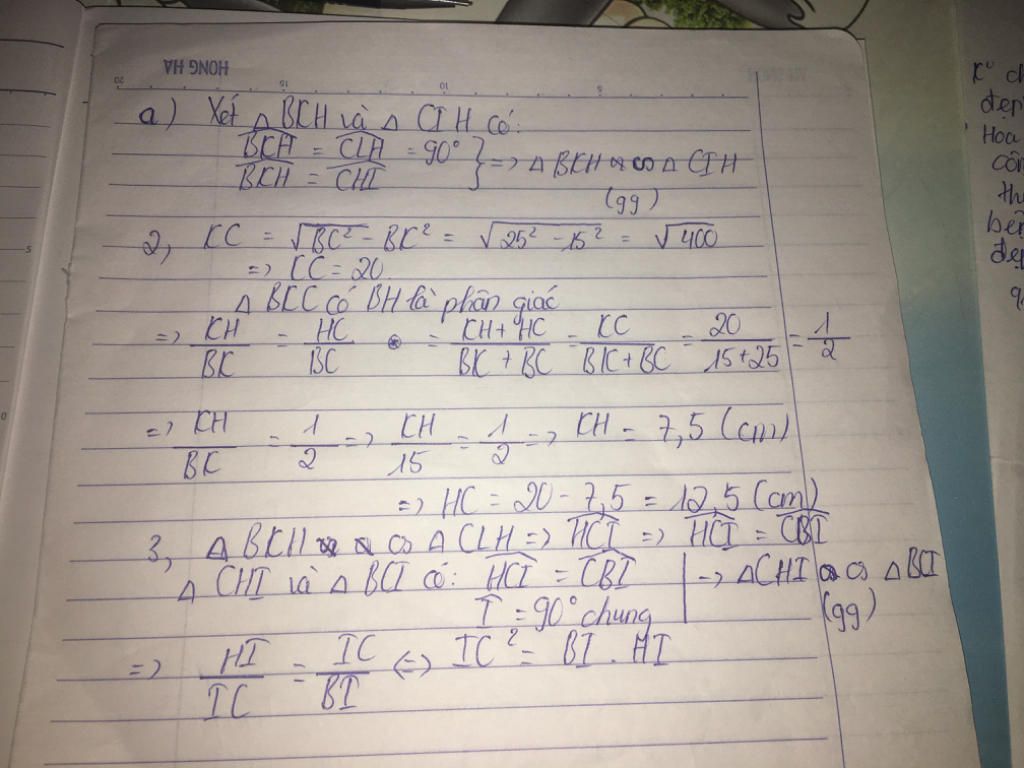 HONG HA
20 15 10 5
a) Xét △ BKH và △ CIH có:
BKH = CLH = 90°
BKH = CHI } => △ BKH ∽ △ CIH
(gg)
2, KC = √BC² - BK² = √25² - 15² = √400
=> CC = 20
△ BCC có BH là phân giác
=> KH/BK = HC/BC = KH + HC/BK + BC = KC/BK + BC = 20/15+25 = 1/2
=> KH/BK = 1/2 => KH/15 = 1/2 => KH = 7,5 (cm)
=> HC = 20 - 7,5 = 12,5 (cm)
3, △ BKH ∽ △ CLH => HCI => HCI = CBI
△ CHI và △ BCI có: HCI = CBI | => △CHI ∽ △ BCI
I = 90° chung (gg)
=> HI/IC = IC/BI <=> IC² = BI . HI
đẹp
Hoa
đẹp